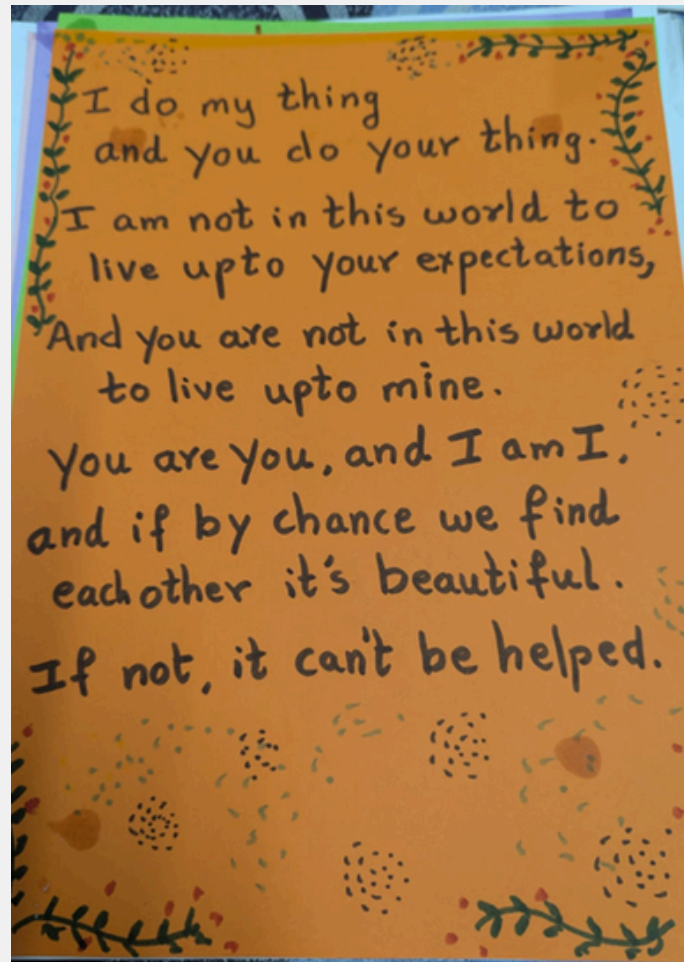 I do my thing
and you do your thing.
I am not in this world to
live upto your expectations,
And you are not in this world
to live upto mine.
You are you, and I am I,
and if by chance we find
each other it's beautiful.
If not, it can't be helped.